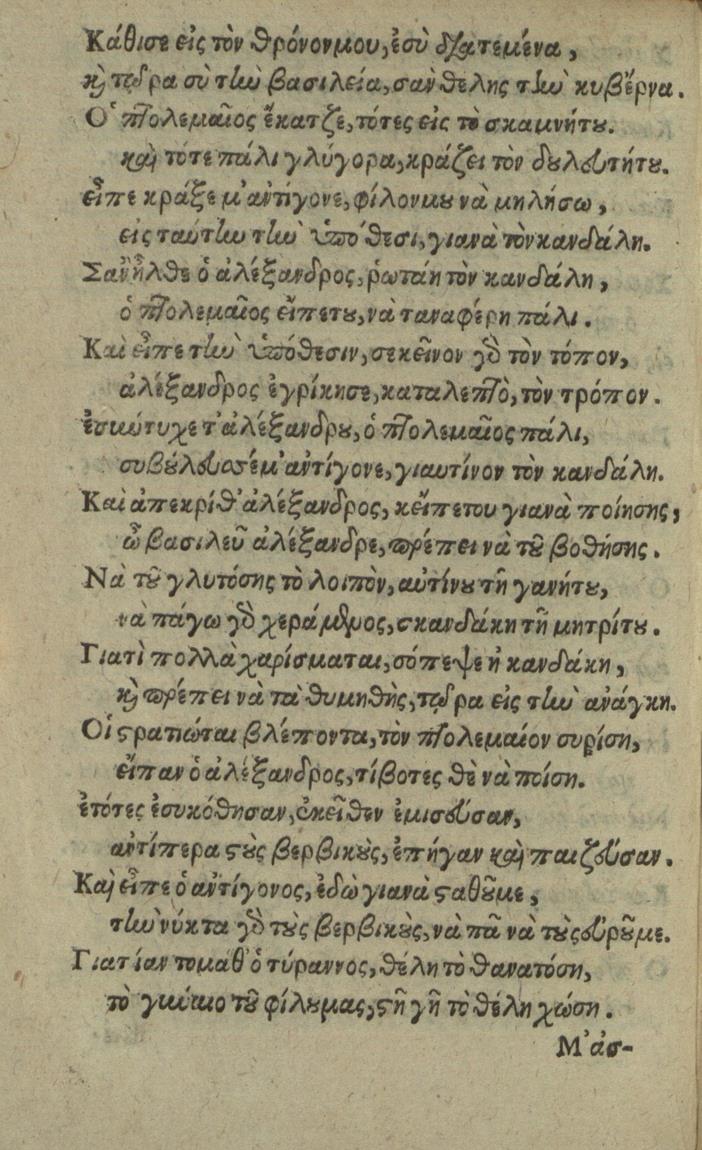 Κάθισε εἰς τὸν θρόνονμου, ἐσὺ διατεμένα,
κὶ τώρα σὺ τὴν βασιλεία, σὰν θέλης τὴν κυβέρνα.
Ο Πτολεμαῖος ἔκατζε, τότες εἰς τὸ σκαμνήτου.
καὶ τότε πάλι γλύγορα, κράζει τὸν δουλευτήτου.
εἶπε κράξε μ' ἀντίγονε, φίλονμου νὰ μηλήσω,
εἰς ταύτην τὴν ὑπόθεσι, γιανὰ τὸν κανδάλη.
Σὰν ἦλθε ὁ ἀλέξανδρος, ῥωτάη τὸν κανδάλη,
ὁ πτολεμαῖος εἴπετου, νὰ ταναφέρη πάλι.
Καὶ εἶπε τὴν ὑπόθεσιν, σεκεῖνον γδ τὸν τόπον,
ἀλέξανδρος ἐγρίκησε, καταλεπτὸ, τὸν τρόπον.
ἐσυώτυχε τ' ἀλέξανδρου, ὁ πτολεμαῖος πάλι,
συβούλευσέ μ' ἀντίγονε, γιαυτίνον τὸν κανδάλη.
Καὶ ἀπεκρίθ' ἀλέξανδρος, κεἴπετου γιανὰ ποίησης,
ὦ βασιλεῦ ἀλέξανδρε, πρέπει νὰ τοῦ βοθήσης.
Νὰ τοῦ γλυτόσης τὸ λοιπὸν, αὐτίνου τῆ γανήτου,
νὰ πάγω γδ χεράμενος, στκανδάκη τῆ μητρίτου.
Γιατὶ πολλὰ χαρίσμαται, σόπεψε ἡ κανδάκη,
κὶ πρέπει νὰ τὰ θυμηθῆς, τώρα εἰς τὴν ἀνάγκη.
Οἱ στρατιώται βλέποντα, τὸν πτολεμαίον συρίση,
εἴπαν ὁ ἀλέξανδρος, τίβοτες θὲ νὰ ποίση.
ἐτότες ἐσυκόθησαν, ἐκεῖθεν ἐμισεύσαν,
αντίπερα στοὺς βερβικοὺς, ἐπήγαν καὶ παιζεύσαν.
Καὶ εἶπε ὁ ἀντίγονος, ἐδὼ γιανὰ σταθοῦμε,
τὴν νύκτα γδ τοὺς βερβικοὺς, νὰ πᾶ νὰ τοὺς εὑροῦμε.
Γιατ' ἰαν τομάθ' ὁ τύραννος, θέλη τὸ θανατόση,
τὸ γυναικιο τοῦ φίλουμας, στῆ γῆ τὸ θέλη χώση.
Μ' ἀσ-